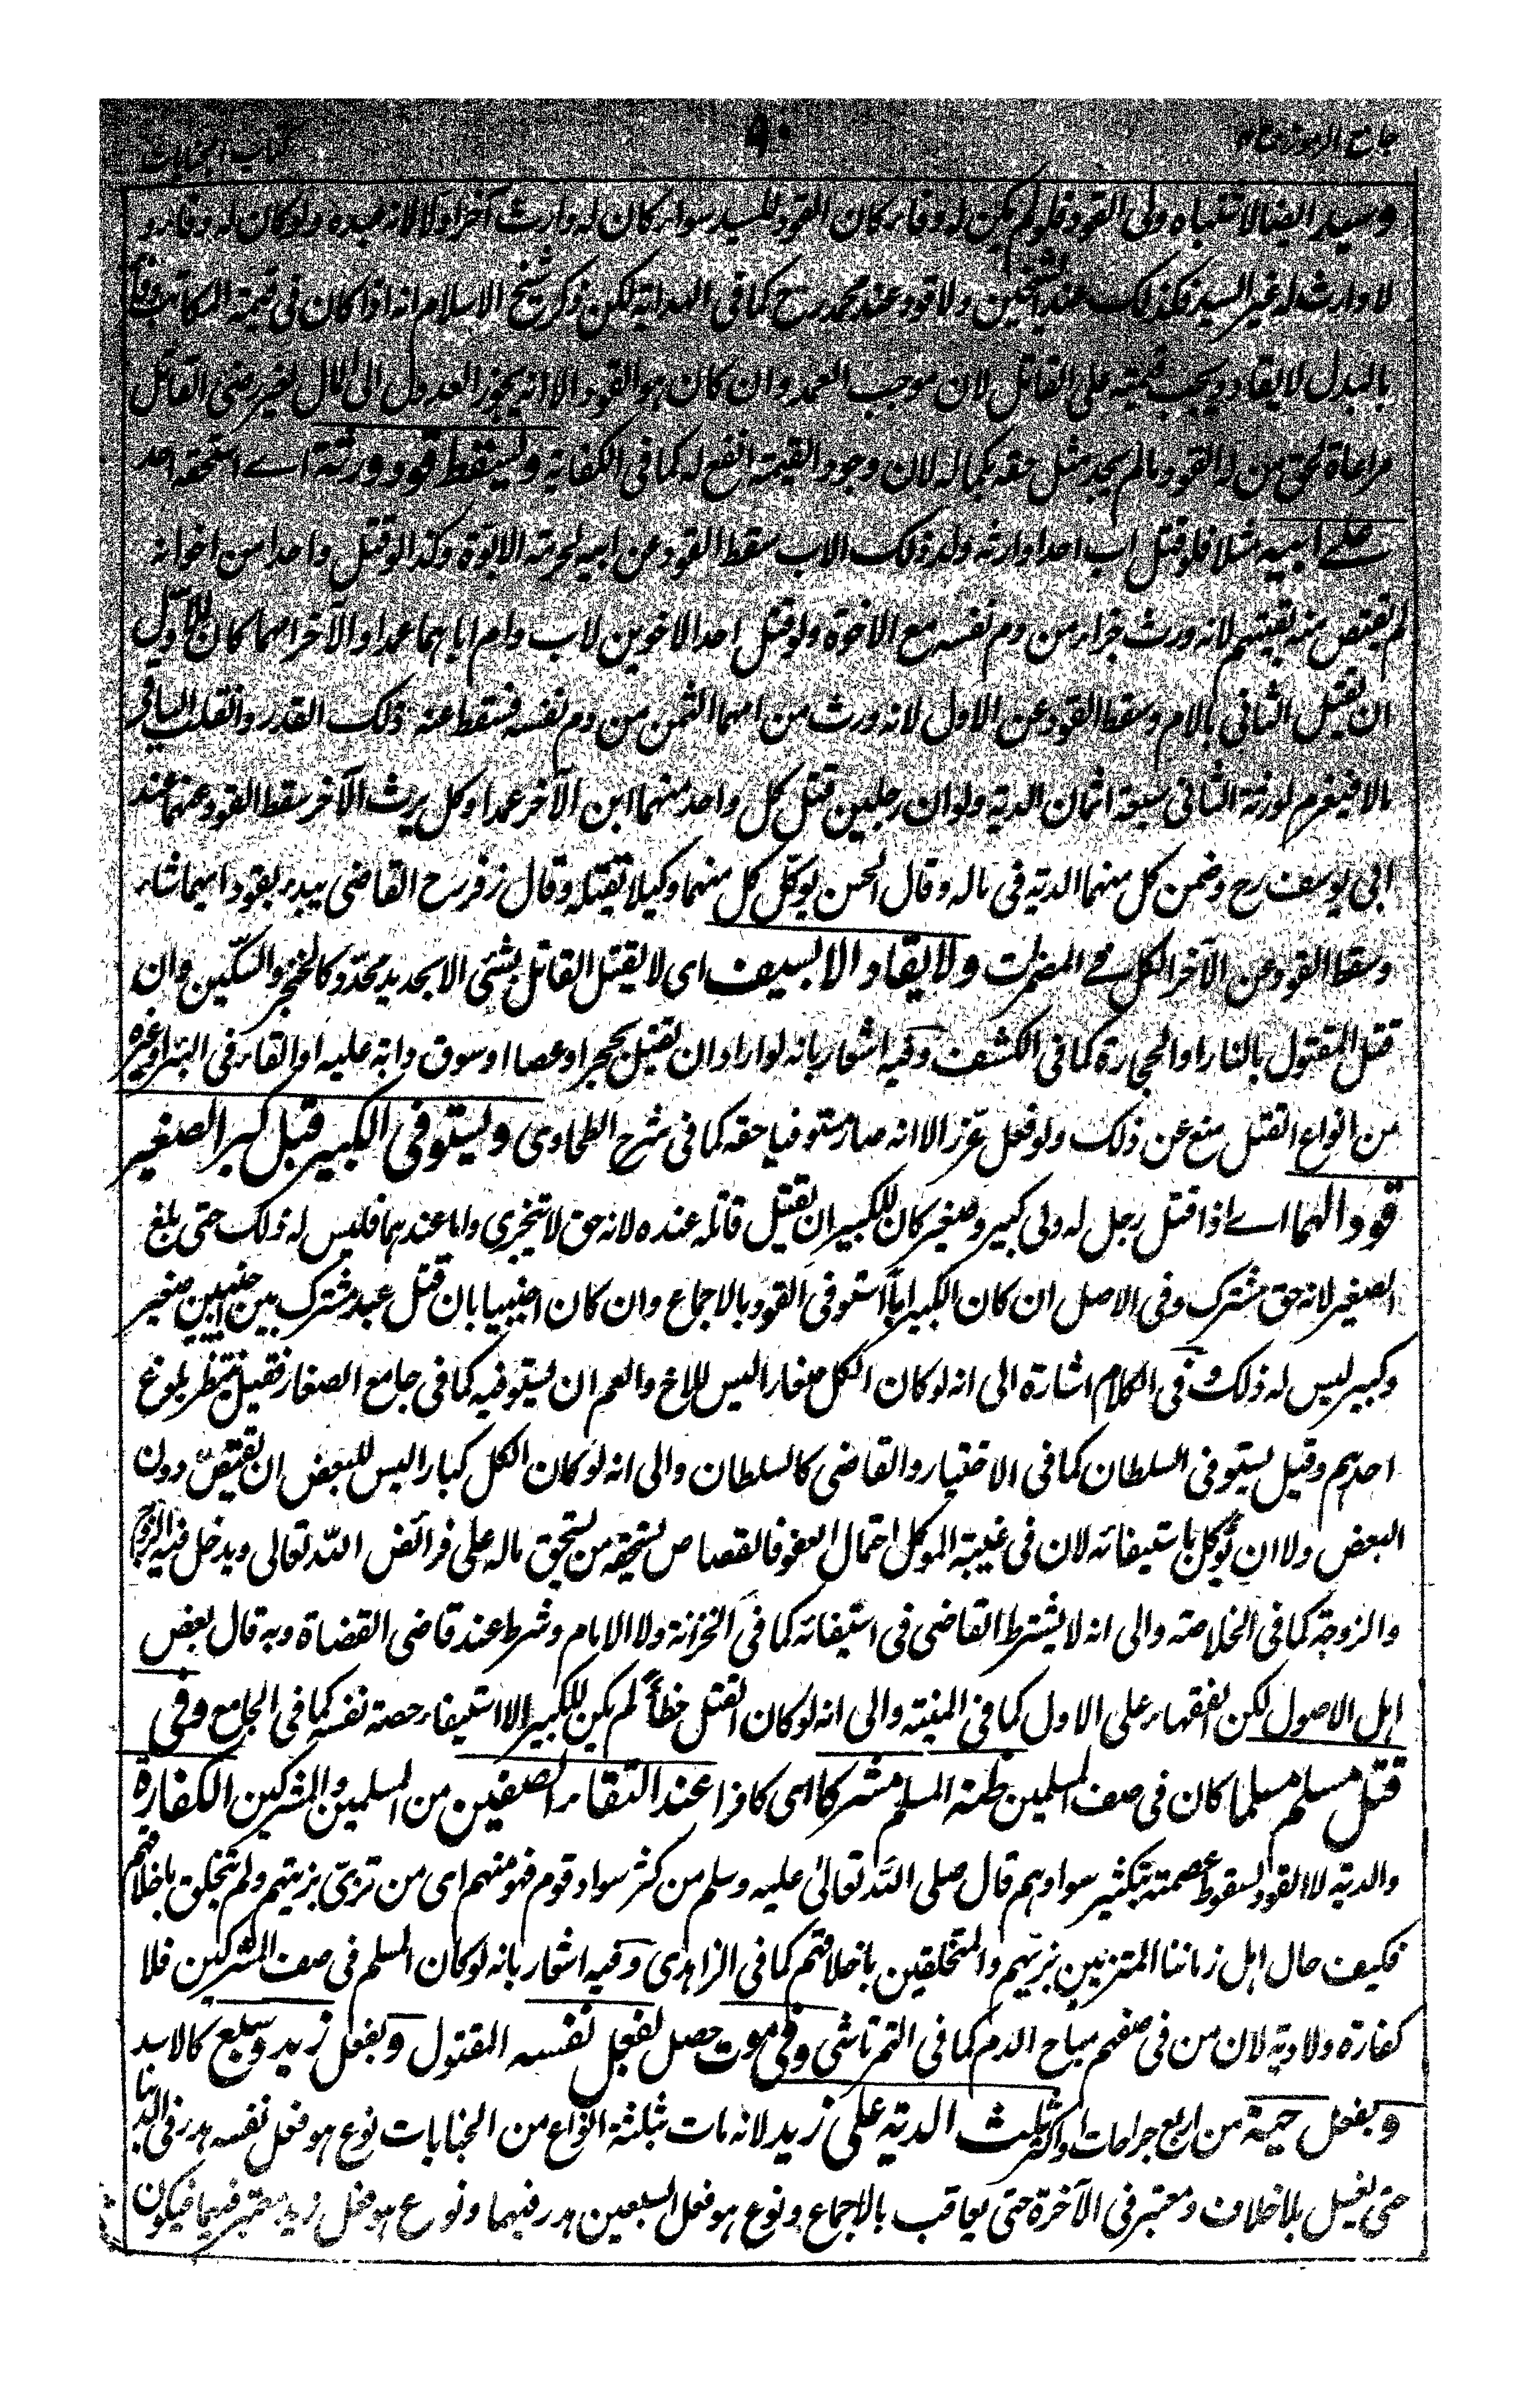 جامع الرموز
٩٠
كتاب الجنايات
وسيد ايضا لاشتباه ولي القود فلو لم يكن له وفاء كان القود للسيد سواء كان له وارث آخر او لا لانه عبده ولو كان له وفاء و
لا وارث له غير السيد فكذلك عند الشيخين ولا قود عند محمد رح كما في الهداية لكن ذكر شيخ الاسلام انه اذا كان في قيمة المكاتب وفاء
بالبدل لا يقاد ويجب قيمته على القاتل لان موجب العمد وان كان هو القود الا انه يجوز العدول الى المال لغير رضى القاتل
مراعاة لحق من له القود مالم يجد مثل حقه بكماله لان وجود القيمة انفع له كما في الكفاية ويسقط قود ورثة اے استحقه احد
على ابيه مثلا فلو قتل اب احدا وارثه ولد ذلك الاب سقط القود عن ابيه لحرمة الابوة وكذا لو قتل واحدا من اخوانه
لم يقتص منه بقيتهم لانه ورث جزاء من دم نفسه مع الاخوة ولو قتل احد الاخوين لاب وام اباهما عمدا والآخر امهما كان للاول
ان يقتل الثاني بالام وسقط القود عن الاول لانه ورث من امهما الثمن من دم نفسه فسقط عنه ذلك القدر وانقلب الباقي
مالا فيغرم لورثة الثاني سبعة اثمان الدية ولو ان رجلين قتل كل واحد منهما ابن الآخر عمدا وكل يرث الآخر سقط القود عنهما عند
ابي يوسف رح وضمن كل منهما الدية في ماله وقال الحسن يوكل كل منهما وكيلا يقتله وقال زفر رح القاضي يبدء بقود ايهما شاء
وسقط القود عن الآخر الكل في المضمرات ولا يقاد الا بسيف اى لا يقتل القاتل بشئ الا بحديد محدد كالخنجر والسكين وان
قتل المقتول بالنار او الحجارة كما في الكشف وفيه اشعار بانه لو اراد ان يقتل بحجر او عصا او سوق دابة عليه او القاء في البئر او غيره
من انواع القتل منع عن ذلك ولو فعل عزر الا انه صار مستوفيا حقه كما في شرح الطحاوى ويستوفى الكبير قبل كبر الصغير
قودا لهما اے اذا قتل رجل له ولى كبير وصغير كان للكبير ان يقتل قاتله عنده لانه حق لا يتجزى واما عندهما فليس له ذلك حتى بلغ
الصغير لانه حق مشترك وفي الاصل ان كان الكبير ابا استوفى القود بالاجماع وان كان اجنبيا بان قتل عبد مشترك بين اجنبيين صغير
وكبير ليس له ذلك وفى الكلام اشارة الى انه لو كان الكل صغارا ليس للاخ والعم ان يستوفيه كما في جامع الصغار فقيل ينتظر بلوغ
احدهم وقيل يستوفى السلطان كما في الاختيار والقاضى كالسلطان والى انه لو كان الكل كبارا ليس للبعض ان يقتص دون
البعض ولا ان يوكل باستيفائه لان في غيبة الموكل احتمال العفو فالقصاص يستحقه من يستحق ماله على فرائض الله تعالى ويدخل فيه الزوج
والزوجة كما في الخلاصة والى انه لا يشترط القاضى في استيفائه كما في الخزانة ولا الامام وشرط عند قاضى القضاة وبه قال بعض
اهل الاصول لكن الفقهاء على الاول كما في المنية والى انه لو كان القتل خطأ لم يكن للكبير الا استيفاء حصة نفسه كما في الجامع وفي
قتل مسلم مسلما كان في صف المسلمين ظنه المسلم مشركا اى كافرا عند التقاء الصفين من المسلمين والمشركين الكفارة
والدية لا القود لسقوط عصمته بتكثير سوادهم قال صلى الله تعالى عليه وسلم من كثر سواد قوم فهو منهم اى من تزيى بزيهم ولم يتخلق باخلاقهم
فكيف حال اهل زماننا المتزيين بزيهم والمتخلقين باخلاقهم كما في الزاهدى وفيه اشعار بانه لو كان المسلم في صف المشركين فلا
كفارة ولا دية لان من في صفهم مباح الدم كما في التمرتاشى وفي موت حصل بفعل نفسه المقتول وبفعل زيد وسبع كالاسد
وبفعل حية من اربع جراحات او اكثر ثلث الدية على زيد لانه مات بثلثة انواع من الجنايات نوع هو فعل نفسه هدر في الدنيا
حتى يغسل بلا خلاف ومعتبر في الآخرة حتى يعاقب بالاجماع ونوع هو فعل السبعين هدر فيهما ونوع هو فعل زيد معتبر فيهما فيكون